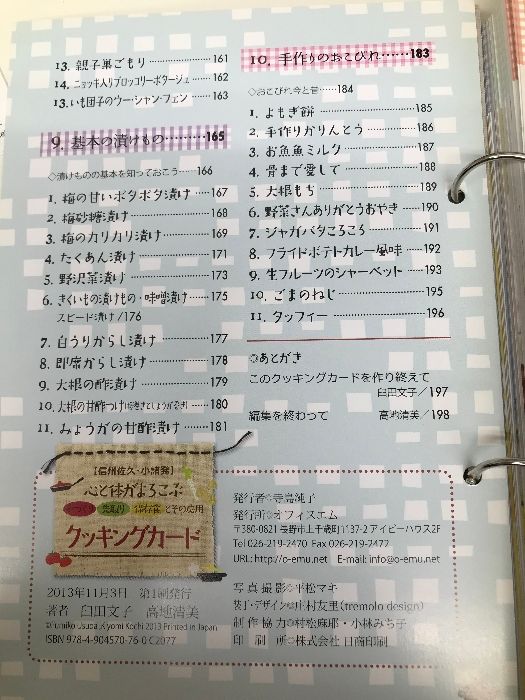 13. 親子巣ごもり………161
14. ニョッキ入りブロッコリーポタージュ……162
13. いも団子のウー・シャン・フェン……163
9. 基本の漬けもの………165
◇漬けものの基本を知っておこう……166
1. 梅の甘いポタポタ漬け……167
2. 梅砂糖漬け……168
3. 梅のカリカリ漬け……169
4. たくあん漬け……171
5. 野沢菜漬け……173
6. きくいもの漬けもの・味噌漬け……175
スピード漬け/176
7. 白うりからし漬け……177
8. 即席からし漬け……178
9. 大根の酢漬け……179
10. 大根の甘酢つけ……180
11. みょうがの甘酢漬け……181
10. 手作りのおこびれ……183
◇おこびれ今と昔……184
1. よもぎ餅……185
2. 手作りかりんとう……186
3. お魚魚ミルク……187
4. 骨まで愛して……188
5. 大根もち……189
6. 野菜さんありがとうおやき……190
7. ジャガバタころころ……191
8. フライドポテトカレー風味……192
9. 生フルーツのシャーベット……193
10. ごまのねじ……195
11. タッフィー……196
◎あとがき
このクッキングカードを作り終えて
臼田文子/197
編集を終わって 高地清美/198
【信州佐久・小諸発】
心と体がよろこぶ
とその応用
クッキングカード
2013年11月3日 第1刷発行
著者 臼田文子 高地清美
©Fumiko Usuda, Kiyomi Kochi 2013 Printed in Japan
ISBN 978-4-904570-76-0 C2077
発行者◎寺島純子
発行所◎オフィスエム
〒380-0821 長野市上千歳町1137-2 アイビーハウス2F
Tel 026-219-2470 Fax 026-219-2472
URL: http://o-emu.net E-mail: info@o-emu.net
写真撮影◎平松マキ
装丁・デザイン◎庄村友里(tremolo design)
制作協力◎村松麻耶・小林みち子
印刷所◎株式会社 日商印刷